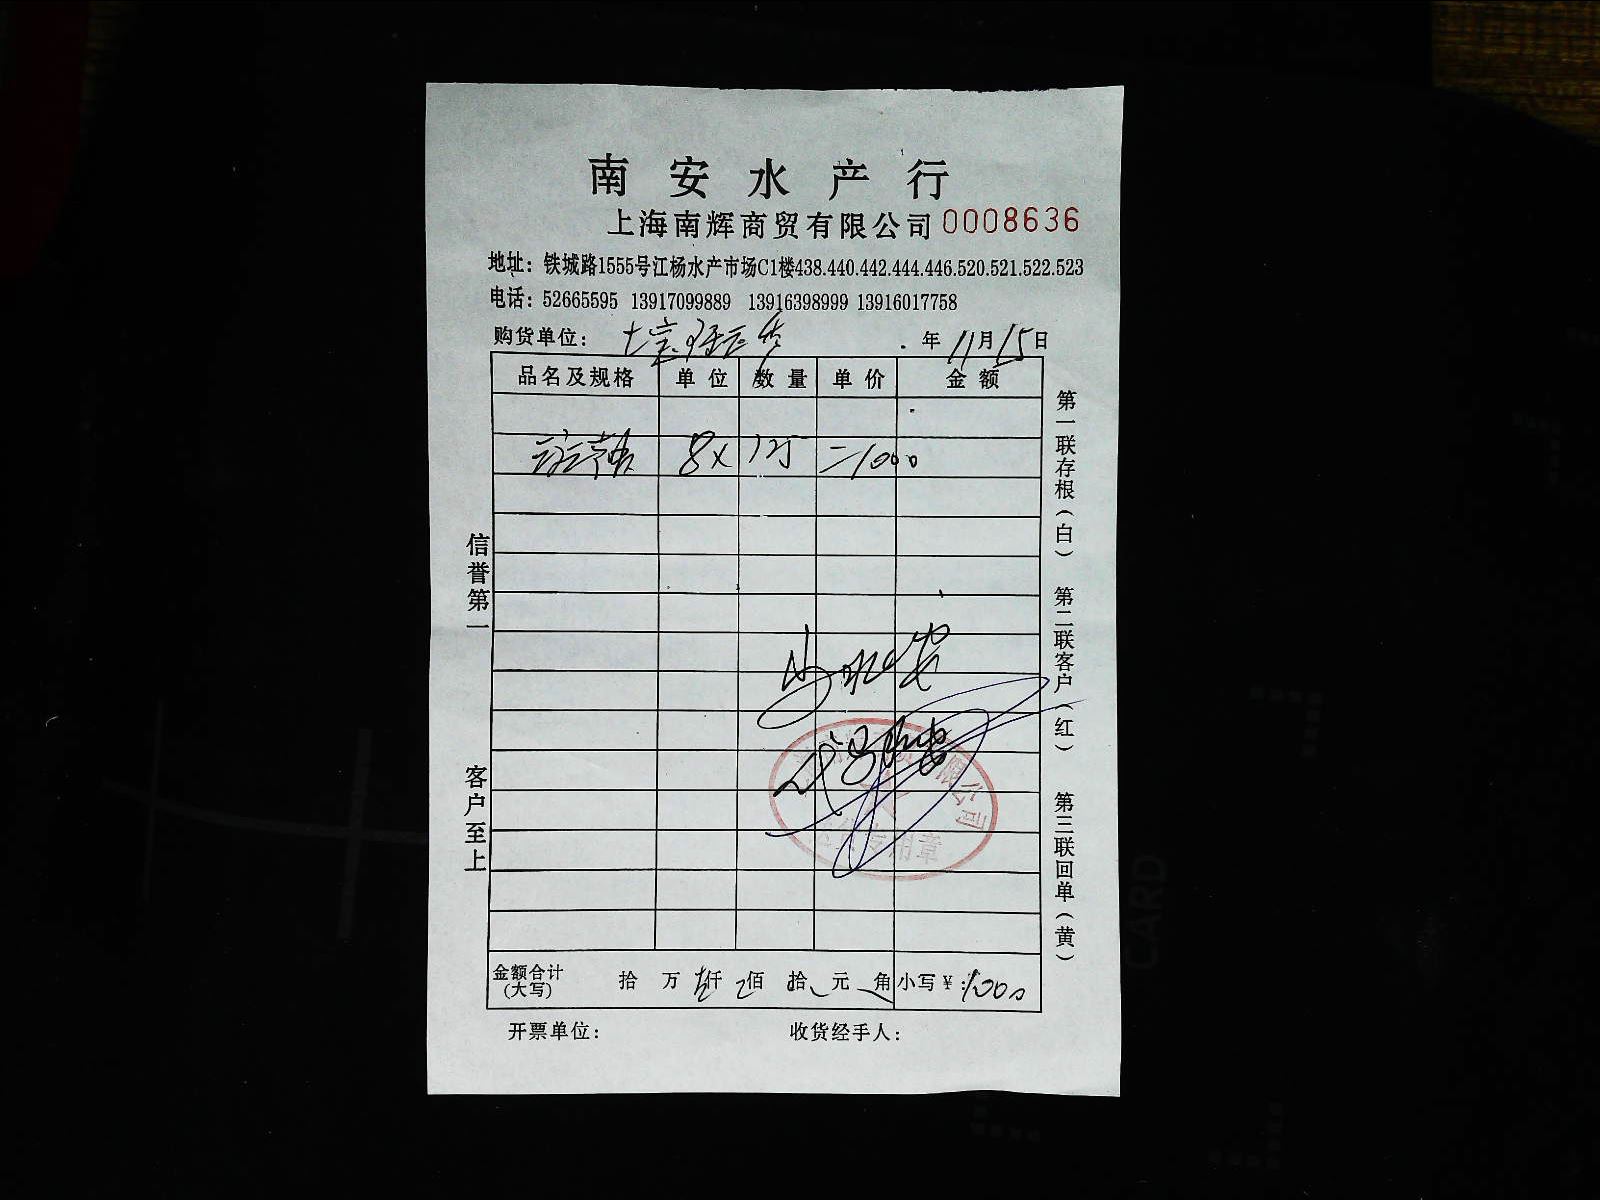 南安水产行
上海南辉商贸有限公司 0008636
地址：铁城路1555号江杨水产市场C1楼438.440.442.444.446.520.521.522.523
电话：52665595 13917099889 13916398999 13916017758
购货单位： 年 11月15日
品名及规格 单位 数量 单价 金额
8× 125 =1000
信誉第一
客户至上
第一联存根（白） 第二联客户（红） 第三联回单（黄）
限公司
专用章
金额合计(大写) 拾 万 仟 佰 拾 元 角 小写￥：1000
开票单位： 收货经手人：
CARD